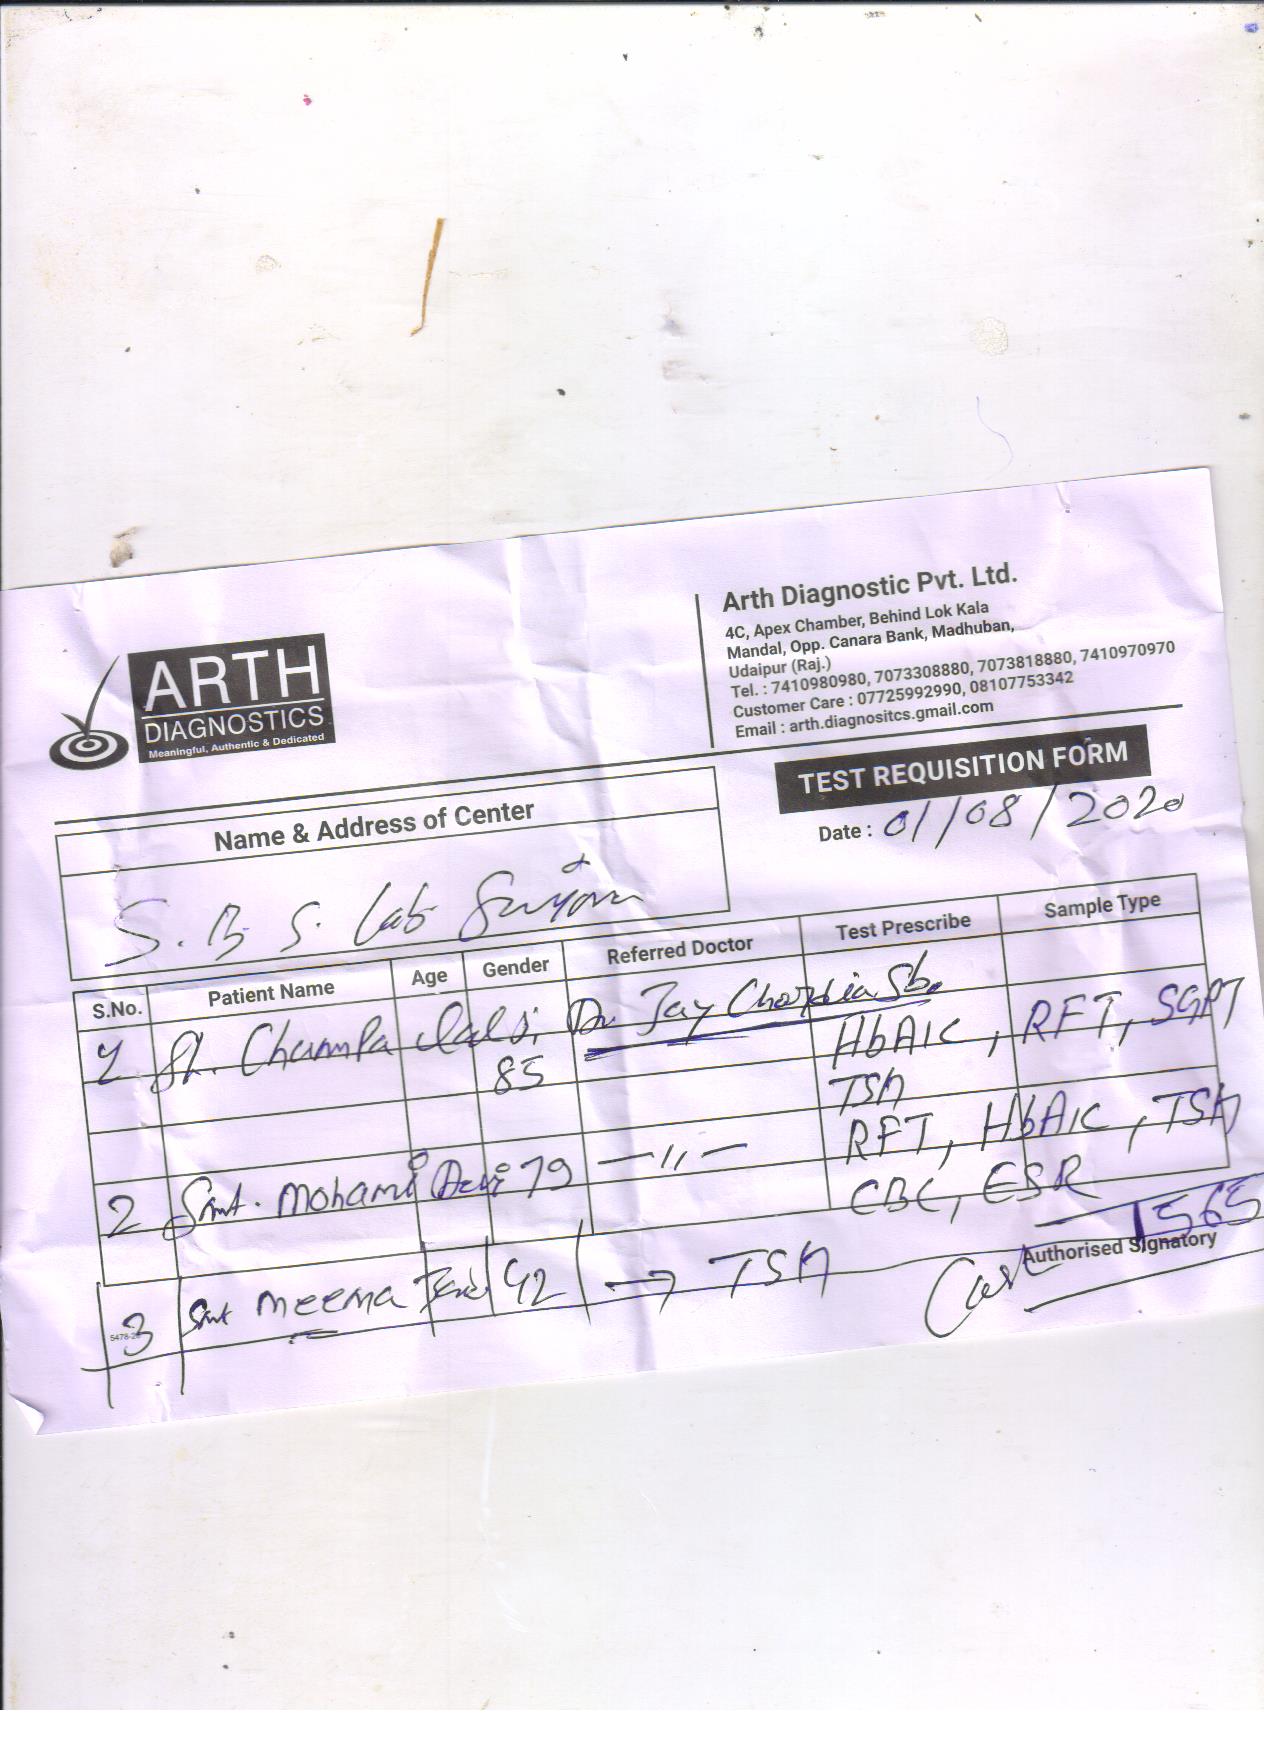 ARTH
DIAGNOSTICS
Meaningful, Authentic & Dedicated
Arth Diagnostic Pvt. Ltd.
4C, Apex Chamber, Behind Lok Kala
Mandal, Opp. Canara Bank, Madhuban,
Udaipur (Raj.)
Tel. : 7410980980, 7073308880, 7073818880, 7410970970
Customer Care : 07725992990, 08107753342
Email : arth.diagnositcs.gmail.com
TEST REQUISITION FORM
Date : 01/08/2020
Name & Address of Center
S. B S. Lab
S.No. Patient Name Age Gender Referred Doctor Test Prescribe Sample Type
1 Sh. Champa Lal Ji 85 Dr Jay Chordia Sb. HbA1C, RFT, SGPT
TSH
2 Smt. Mohani Devi 79 —〃— RFT, HbA1C, TSH
CBC, ESR
1565
Authorised Signatory
3 Smt Meena 42 → TSH
5478-20